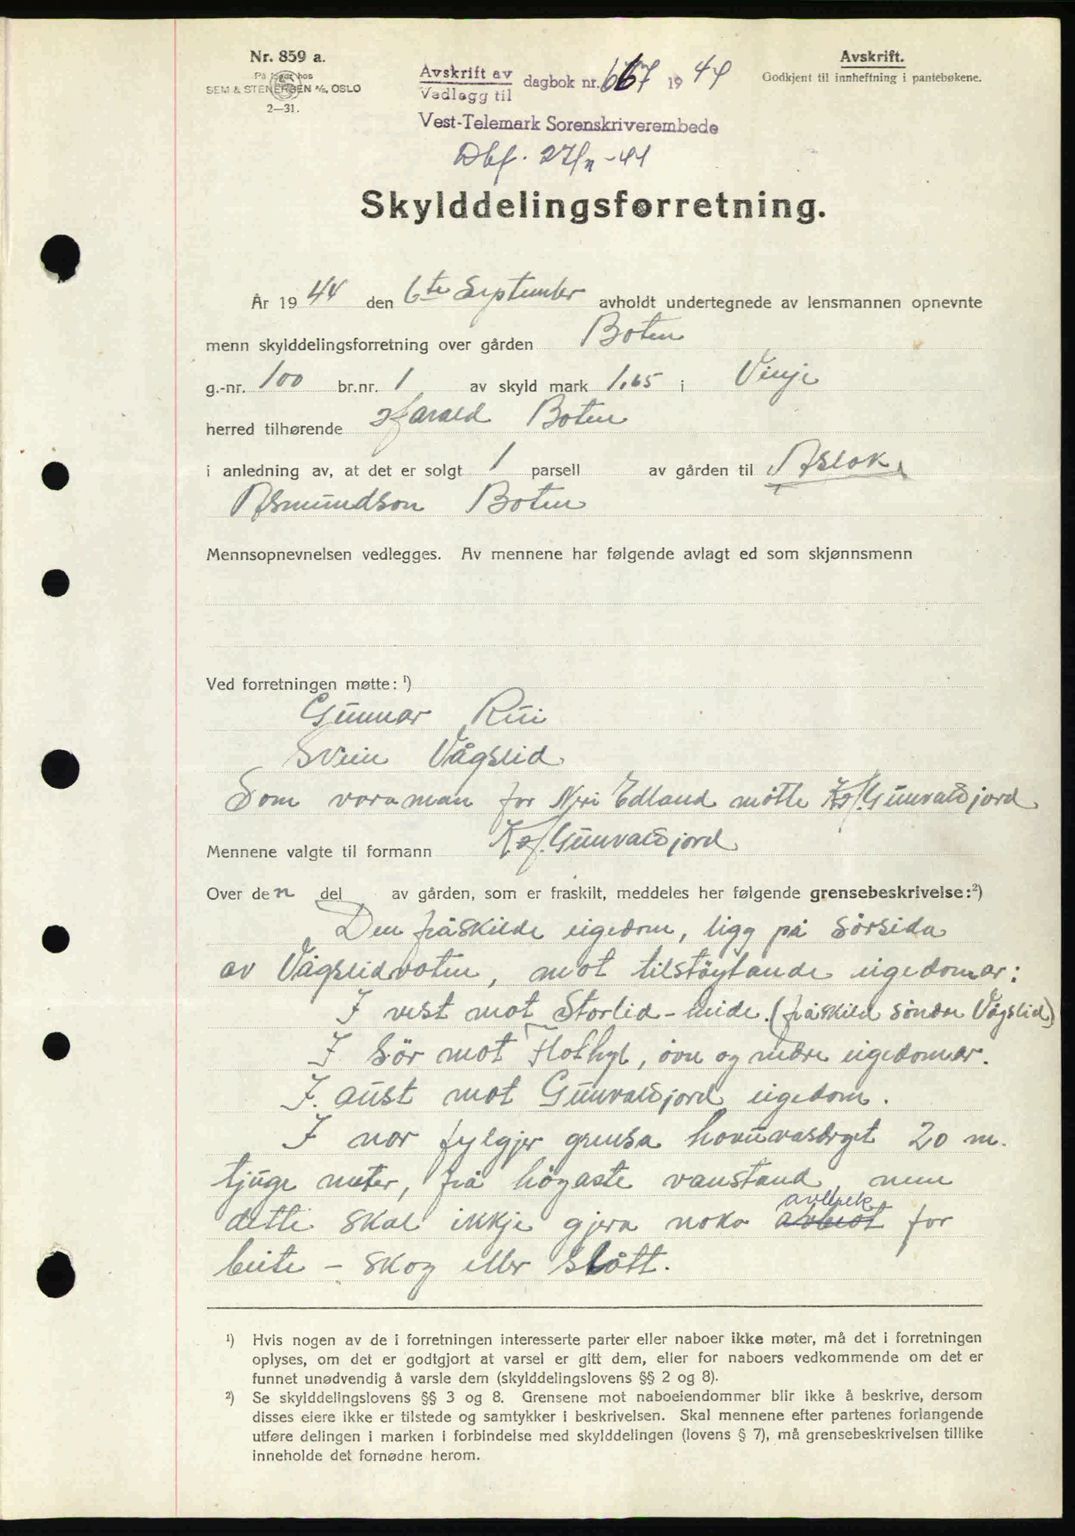 Nr. 859 a.
På lager hos
SEM & STENERSEN A/S, OSLO
2—31.
Avskrift av
Vedlegg til dagbok nr. 667 1944
Vest-Telemark Sorenskriverembede
Dbf. 27/11-44
Avskrift.
Godkjent til innheftning i pantebøkene.
Skylddelingsforretning.
År 1944 den 6te September avholdt undertegnede av lensmannen opnevnte
menn skylddelingsforretning over gården Boten
g.-nr. 100 br.nr. 1 av skyld mark 1,65 i Vinje
herred tilhørende Harald Boten
i anledning av, at det er solgt 1 parsell av gården til Aslak
Asmundson Boten
Mennsopnevnelsen vedlegges. Av mennene har følgende avlagt ed som skjønnsmenn
Ved forretningen møtte: ¹)
Gunnar Rui
Svein Vågslid
Som varaman for Nyri Edland møtte Kr./Gunvaldjord
Mennene valgte til formann Kr/Gunvaldjord
Over den del av gården, som er fraskilt, meddeles her følgende grensebeskrivelse:²)
Den fråskilde eigedom, ligg på sörsida
av Vågslidvaten, mot tilstöytande eigedomar:
I vest mot Storlid-heide. (fråskild söndre Vågslid)
I Sör mot Flothyl, övre og nedre eigedomar.
I. aust mot Gunvaldjord eigedom.
I nor fylgjer grensa hovuvasdrget 20 m.
tjuge meter, frå högaste vasstand, men
avbrekk
dette skal ikkje gjera noko avbrot for
beite - skog eller slått.
¹) Hvis nogen av de i forretningen interesserte parter eller naboer ikke møter, må det i forretningen
oplyses, om det er godtgjort at varsel er gitt dem, eller for naboers vedkommende om det er
funnet unødvendig å varsle dem (skylddelingslovens §§ 2 og 8).
²) Se skylddelingslovens §§ 3 og 8. Grensene mot naboeiendommer blir ikke å beskrive, dersom
disses eiere ikke er tilstede og samtykker i beskrivelsen. Skal mennene efter partenes forlangende
utføre delingen i marken i forbindelse med skylddelingen (lovens § 7), må grensebeskrivelsen tillike
inneholde det fornødne herom.